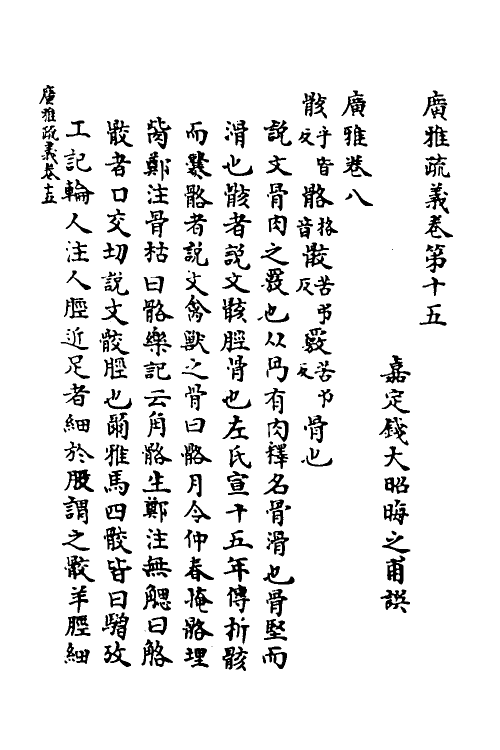 廣雅疏義卷第十五
嘉定錢大昭晦之甫譔
廣雅卷八
骸乎皆反骼音格骹苦弔反覈苦弔反骨也
說文骨肉之覈也从冎有肉釋名骨滑也骨堅而
滑也骸者說文骸脛骨也左氏宣十五年傳折骸
而爨骼者說文禽獸之骨曰骼月令仲春掩骼埋
胔鄭注骨枯曰骼樂記云角骼生鄭注無䚡曰骼
骹者口交切說文骹脛也爾雅馬四骹皆曰驓攷
工記輪人注人脛近足者細於股謂之骹羊脛細
廣雅疏義卷十五